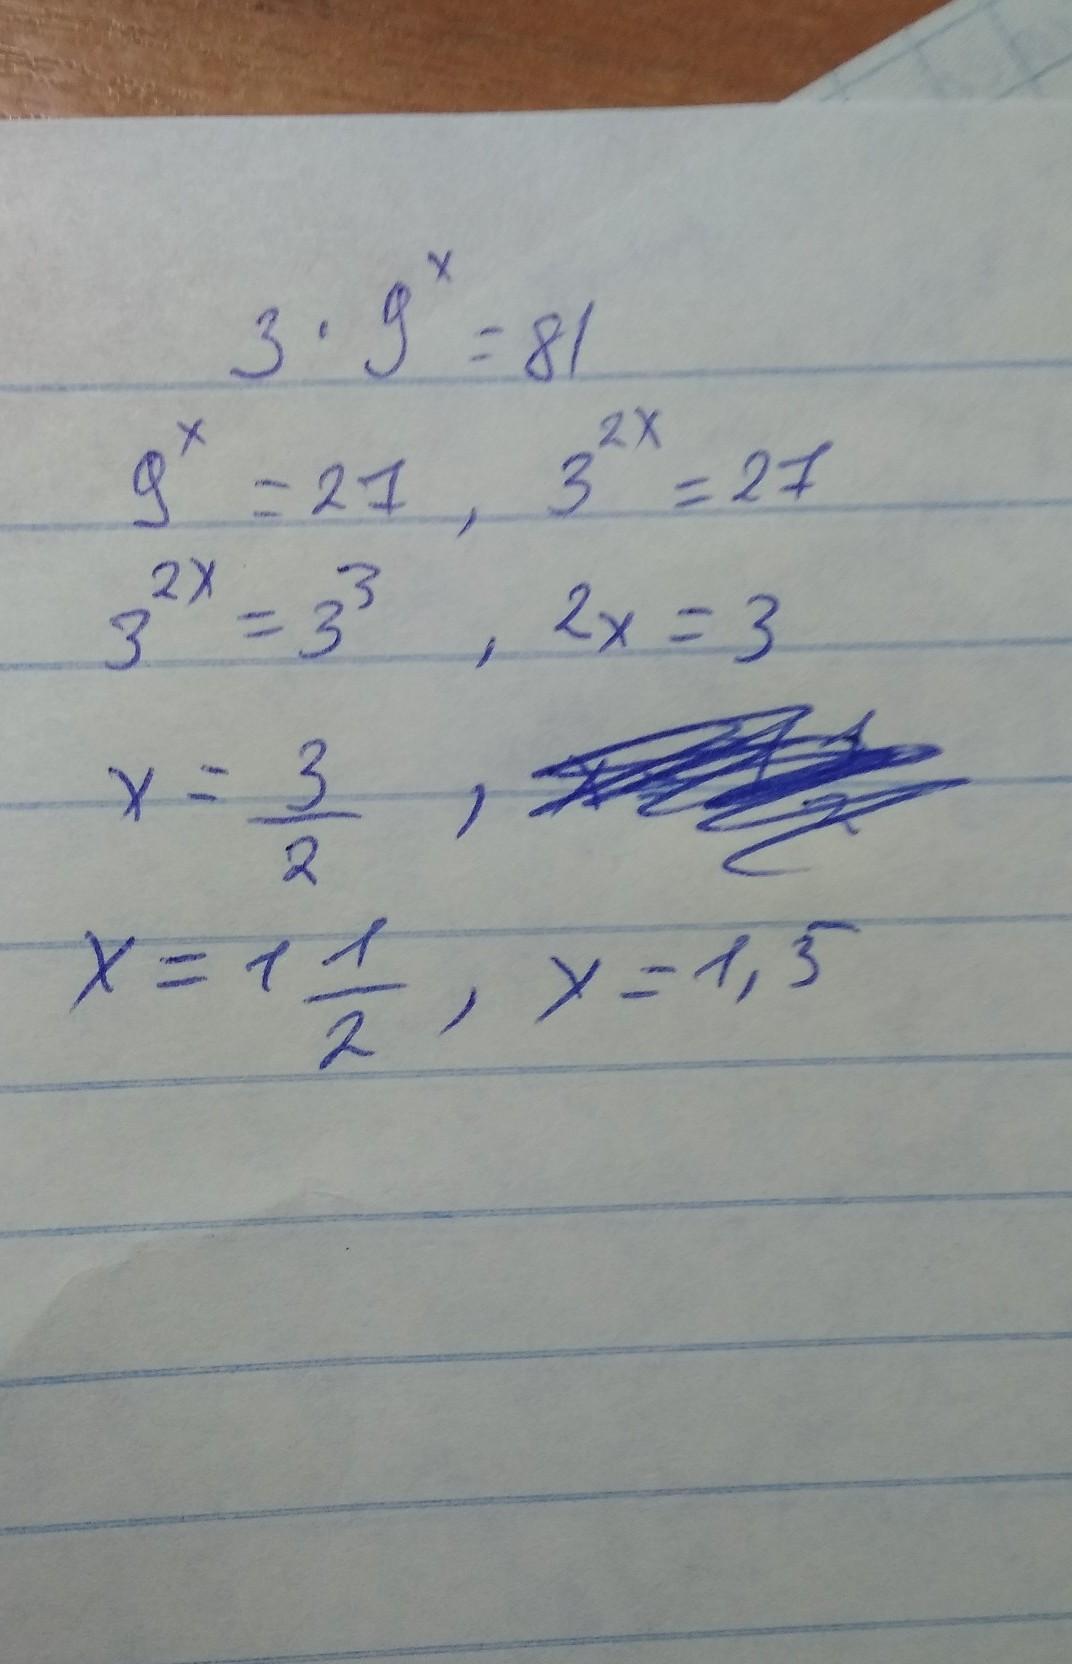 3 · 9^x = 81
9^x = 27 , 3^2x = 27
3^2x = 3^3 , 2x = 3
x = 3/2 ,
x = 1 1/2 , x = 1,5